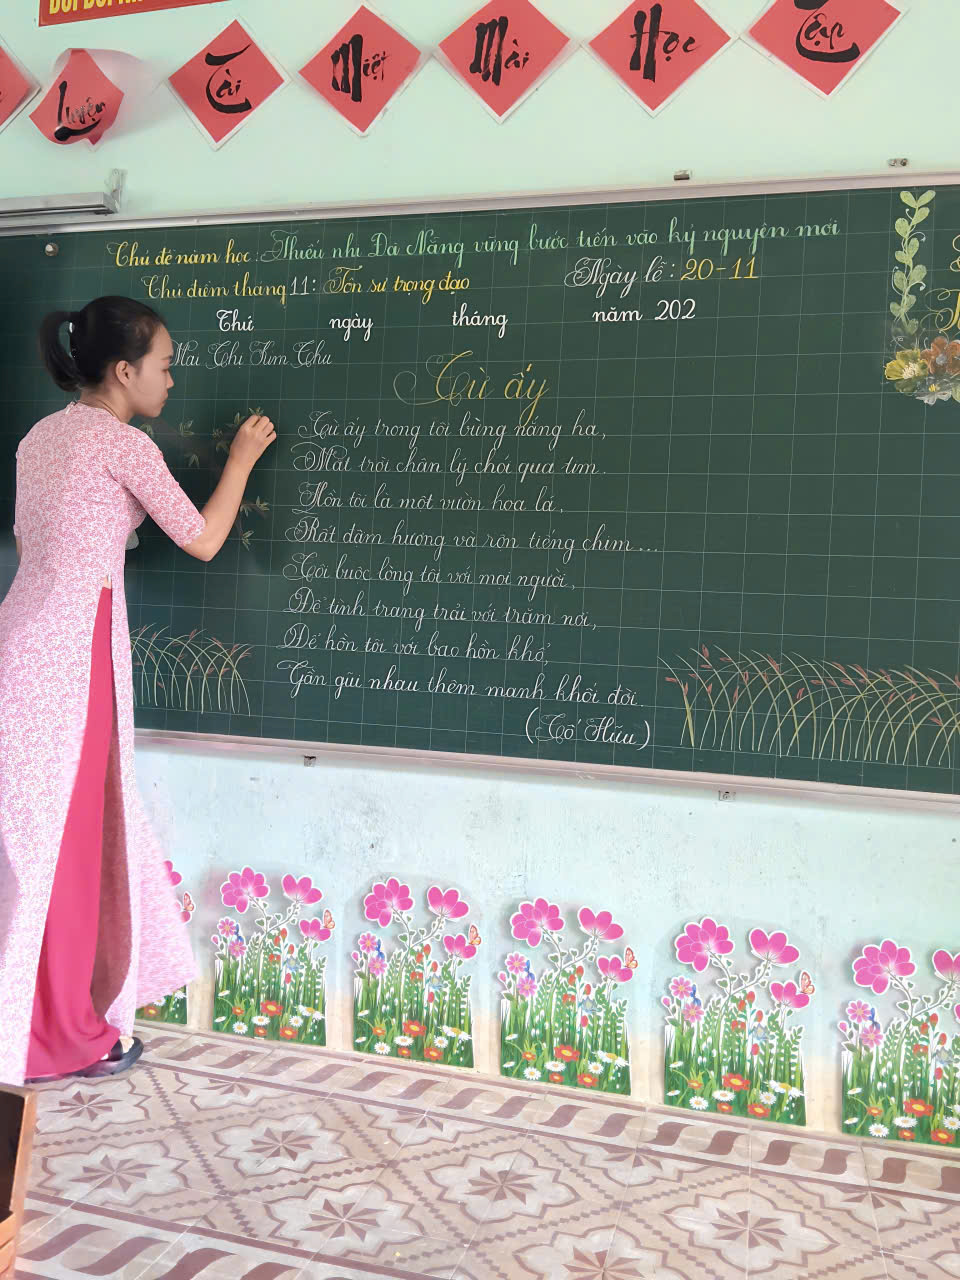 Luyện Tài Miệt Mài Học Tập
Chủ đề năm học: Thiếu nhi Đà Nẵng vững bước tiến vào kỷ nguyên mới
Chủ điểm tháng 11: Tôn sư trọng đạo
Ngày lễ: 20-11
Thứ ngày tháng năm 202
Mai Thị Kim Thu
Từ ấy
Từ ấy trong tôi bừng nắng hạ,
Mặt trời chân lý chói qua tim.
Hồn tôi là một vườn hoa lá,
Rất đậm hương và rộn tiếng chim...
Tôi buộc lòng tôi với mọi người,
Để tình trang trải với trăm nơi,
Để hồn tôi với bao hồn khổ,
Gần gũi nhau thêm mạnh khối đời.
(Tố Hữu)